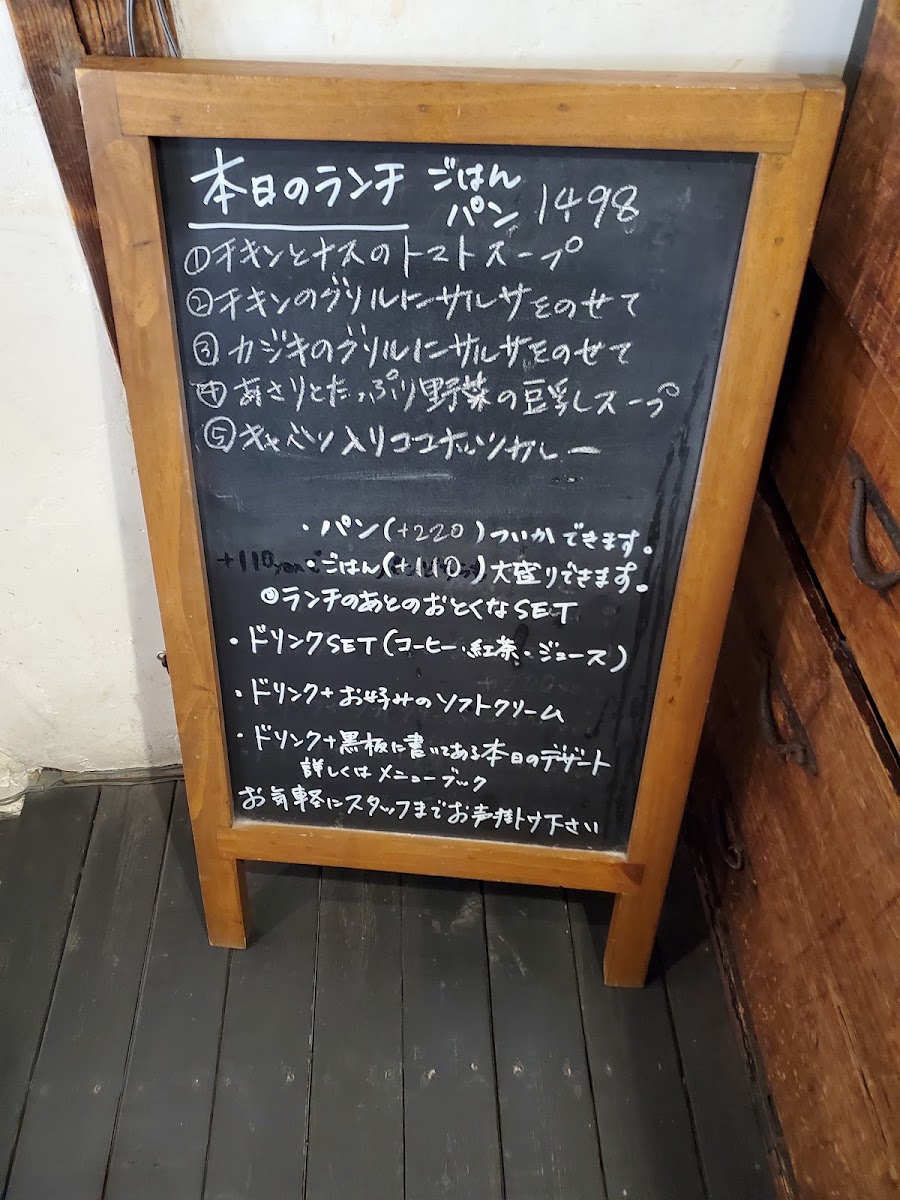 本日のランチ ごはん パン 1498
①チキンとナスのトマトスープ
②チキンのグリルにサルサをのせて
③カジキのグリルにサルサをのせて
④あさりとたっぷり野菜の豆乳スープ
⑤キャベツ入りココナッツカレー
・パン(+220)ついかできます。
・ごはん(+110)大盛りできます。
◎ランチのあとのおとくなSET
・ドリンクSET(コーヒー・紅茶・ジュース)
・ドリンク+お好みのソフトクリーム
・ドリンク+黒板に書いてある本日のデザート
詳しくはメニューブック
お気軽にスタッフまでお声掛け下さい